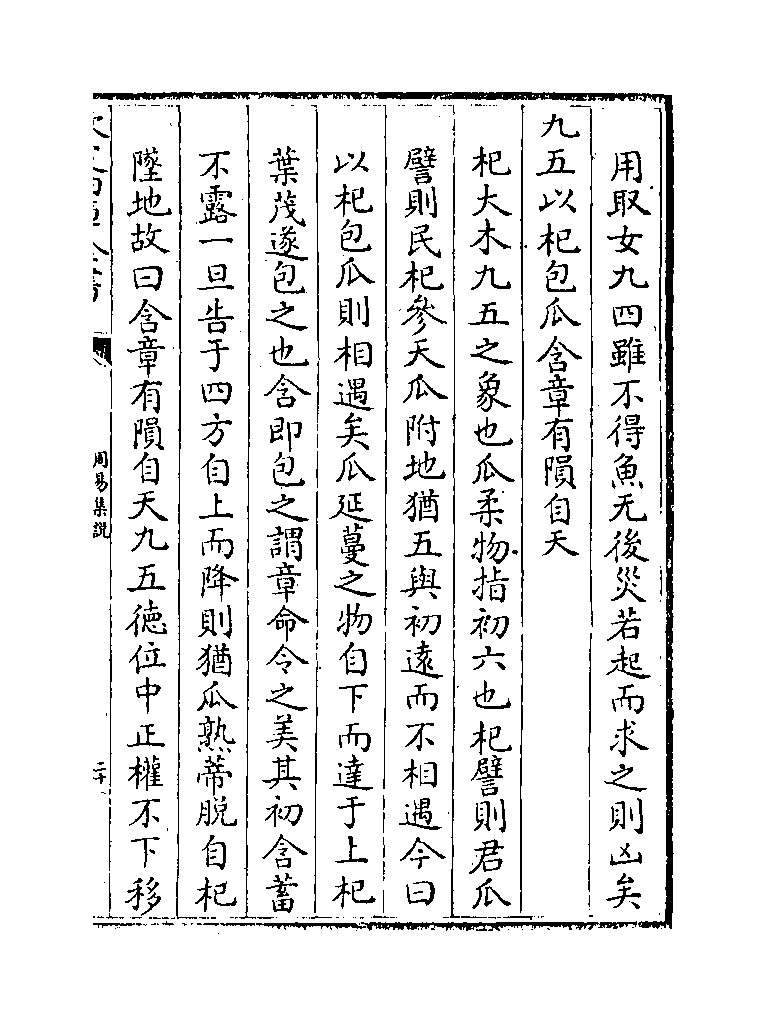 用取女九四雖不得魚无後災若起而求之則凶矣
九五以杞包瓜含章有隕自天
杞大木九五之象也瓜柔物指初六也杞譬則君瓜
譬則民杞參天瓜附地猶五與初遠而不相遇今曰
以杞包瓜則相遇矣瓜延蔓之物自下而達于上杞
葉茂遂包之也含即包之謂章命令之美其初含蓄
不露一旦告于四方自上而降則猶瓜熟蒂脫自杞
墜地故曰含章有隕自天九五徳位中正權不下移
周易集說
二十